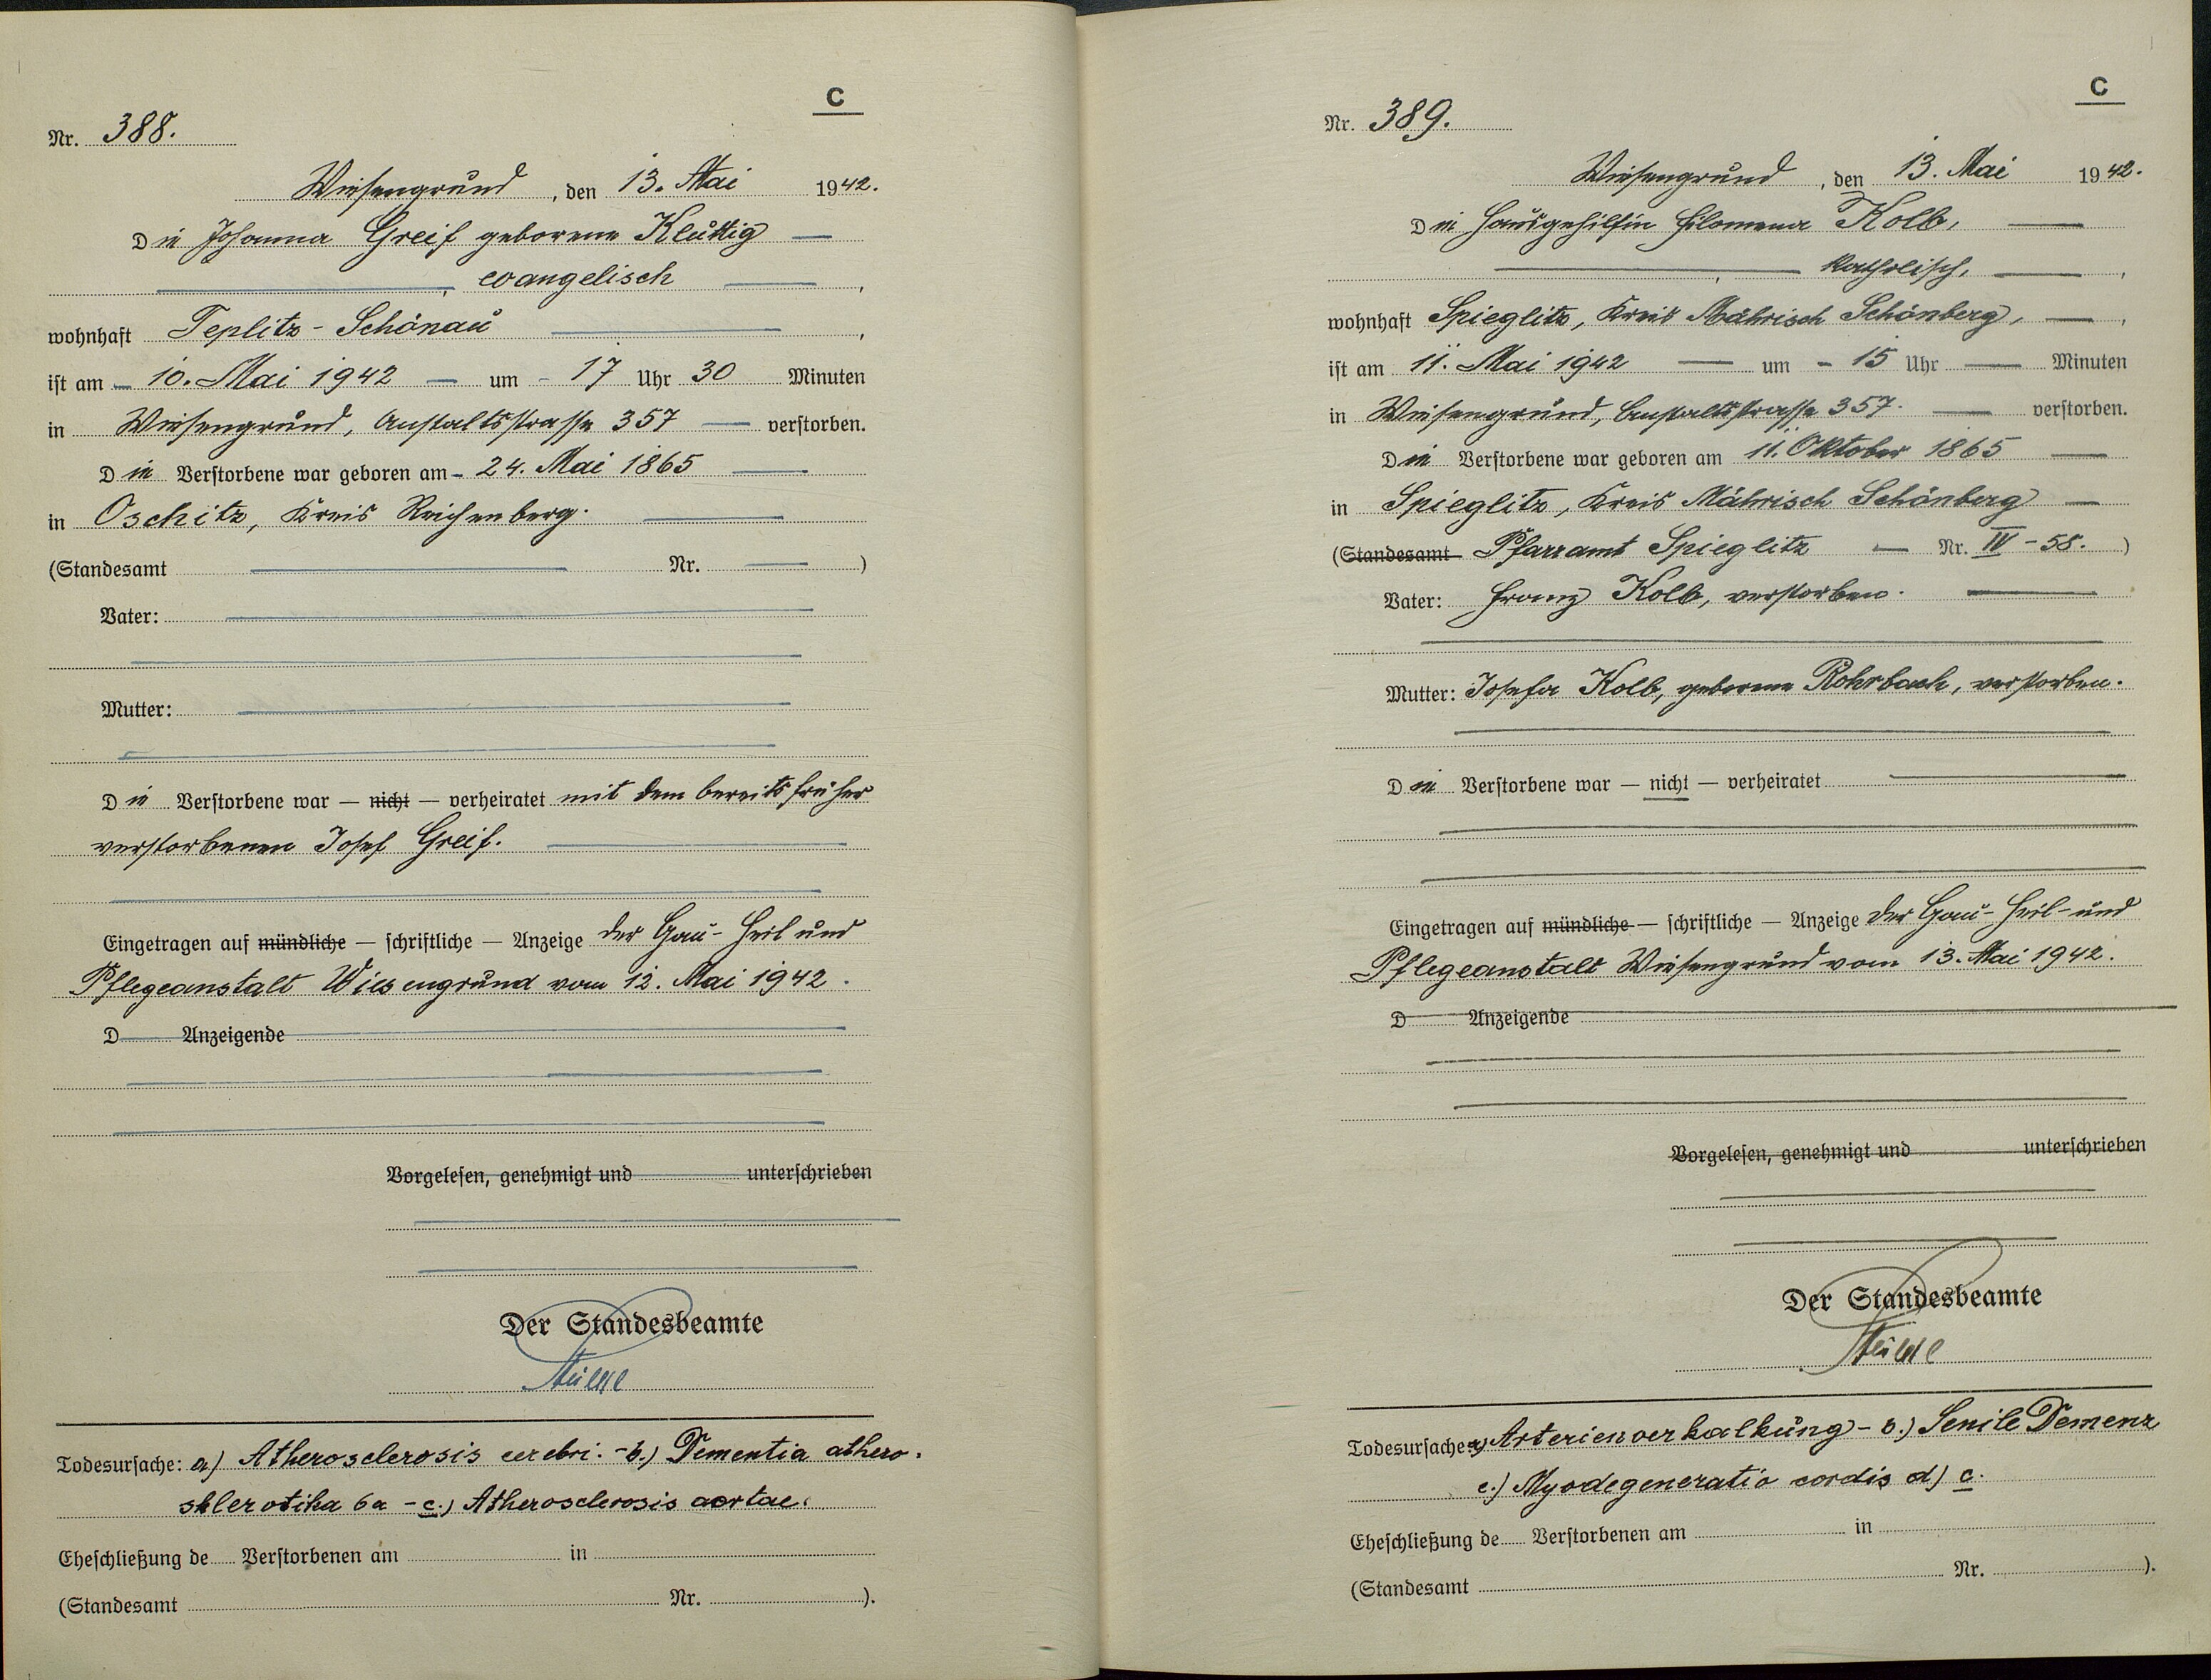 C
Nr. 388.
Wiesengrund, den 13. Mai 1942.
Die Johanna Greif geborene Kluttig
, evangelisch,
wohnhaft Teplitz-Schönau,
ist am 10. Mai 1942 um 17 Uhr 30 Minuten
in Wiesengrund, Anstaltsstrasse 357 verstorben.
Die Verstorbene war geboren am 24. Mai 1865
in Oschitz, Kreis Reichenberg.
(Standesamt Nr. )
Vater:
Mutter:
Die Verstorbene war — nicht — verheiratet mit dem bereits früher
verstorbenen Josef Greif.
Eingetragen auf mündliche — schriftliche — Anzeige der Gau-Heil und
Pflegeanstalt Wiesengrund vom 12. Mai 1942.
D Anzeigende
Vorgelesen, genehmigt und unterschrieben
Der Standesbeamte
Todesursache: a) Atherosclerosis cerebri. - b.) Dementia athero.
sklerotika 6a - c.) Atherosclerosis aortae.
Eheschließung de Verstorbenen am in
(Standesamt Nr. ).
C
Nr. 389.
Wiesengrund, den 13. Mai 1942.
Die Hausgehilfin Filomena Kolb,
, katholisch, ,
wohnhaft Spieglitz, Kreis Mährisch Schönberg, ,
ist am 11. Mai 1942 um 15 Uhr Minuten
in Wiesengrund, Anstaltsstrasse 357. verstorben.
Die Verstorbene war geboren am 11. Oktober 1865
in Spieglitz, Kreis Mährisch Schönberg
(Standesamt Pfarramt Spieglitz Nr. IV - 58. )
Vater: Franz Kolb, verstorben.
Mutter: Josefa Kolb, geborene Rohrbach, verstorben.
Die Verstorbene war — nicht — verheiratet
Eingetragen auf mündliche — schriftliche — Anzeige der Gau-Heil-und
Pflegeanstalt Wiesengrund vom 13. Mai 1942.
D Anzeigende
Vorgelesen, genehmigt und unterschrieben
Der Standesbeamte
Todesursache: a) Arterienverkalkung - b.) Senile Demenz
c.) Myodegeneratio cordis d) c.
Eheschließung de Verstorbenen am in
(Standesamt Nr. ).